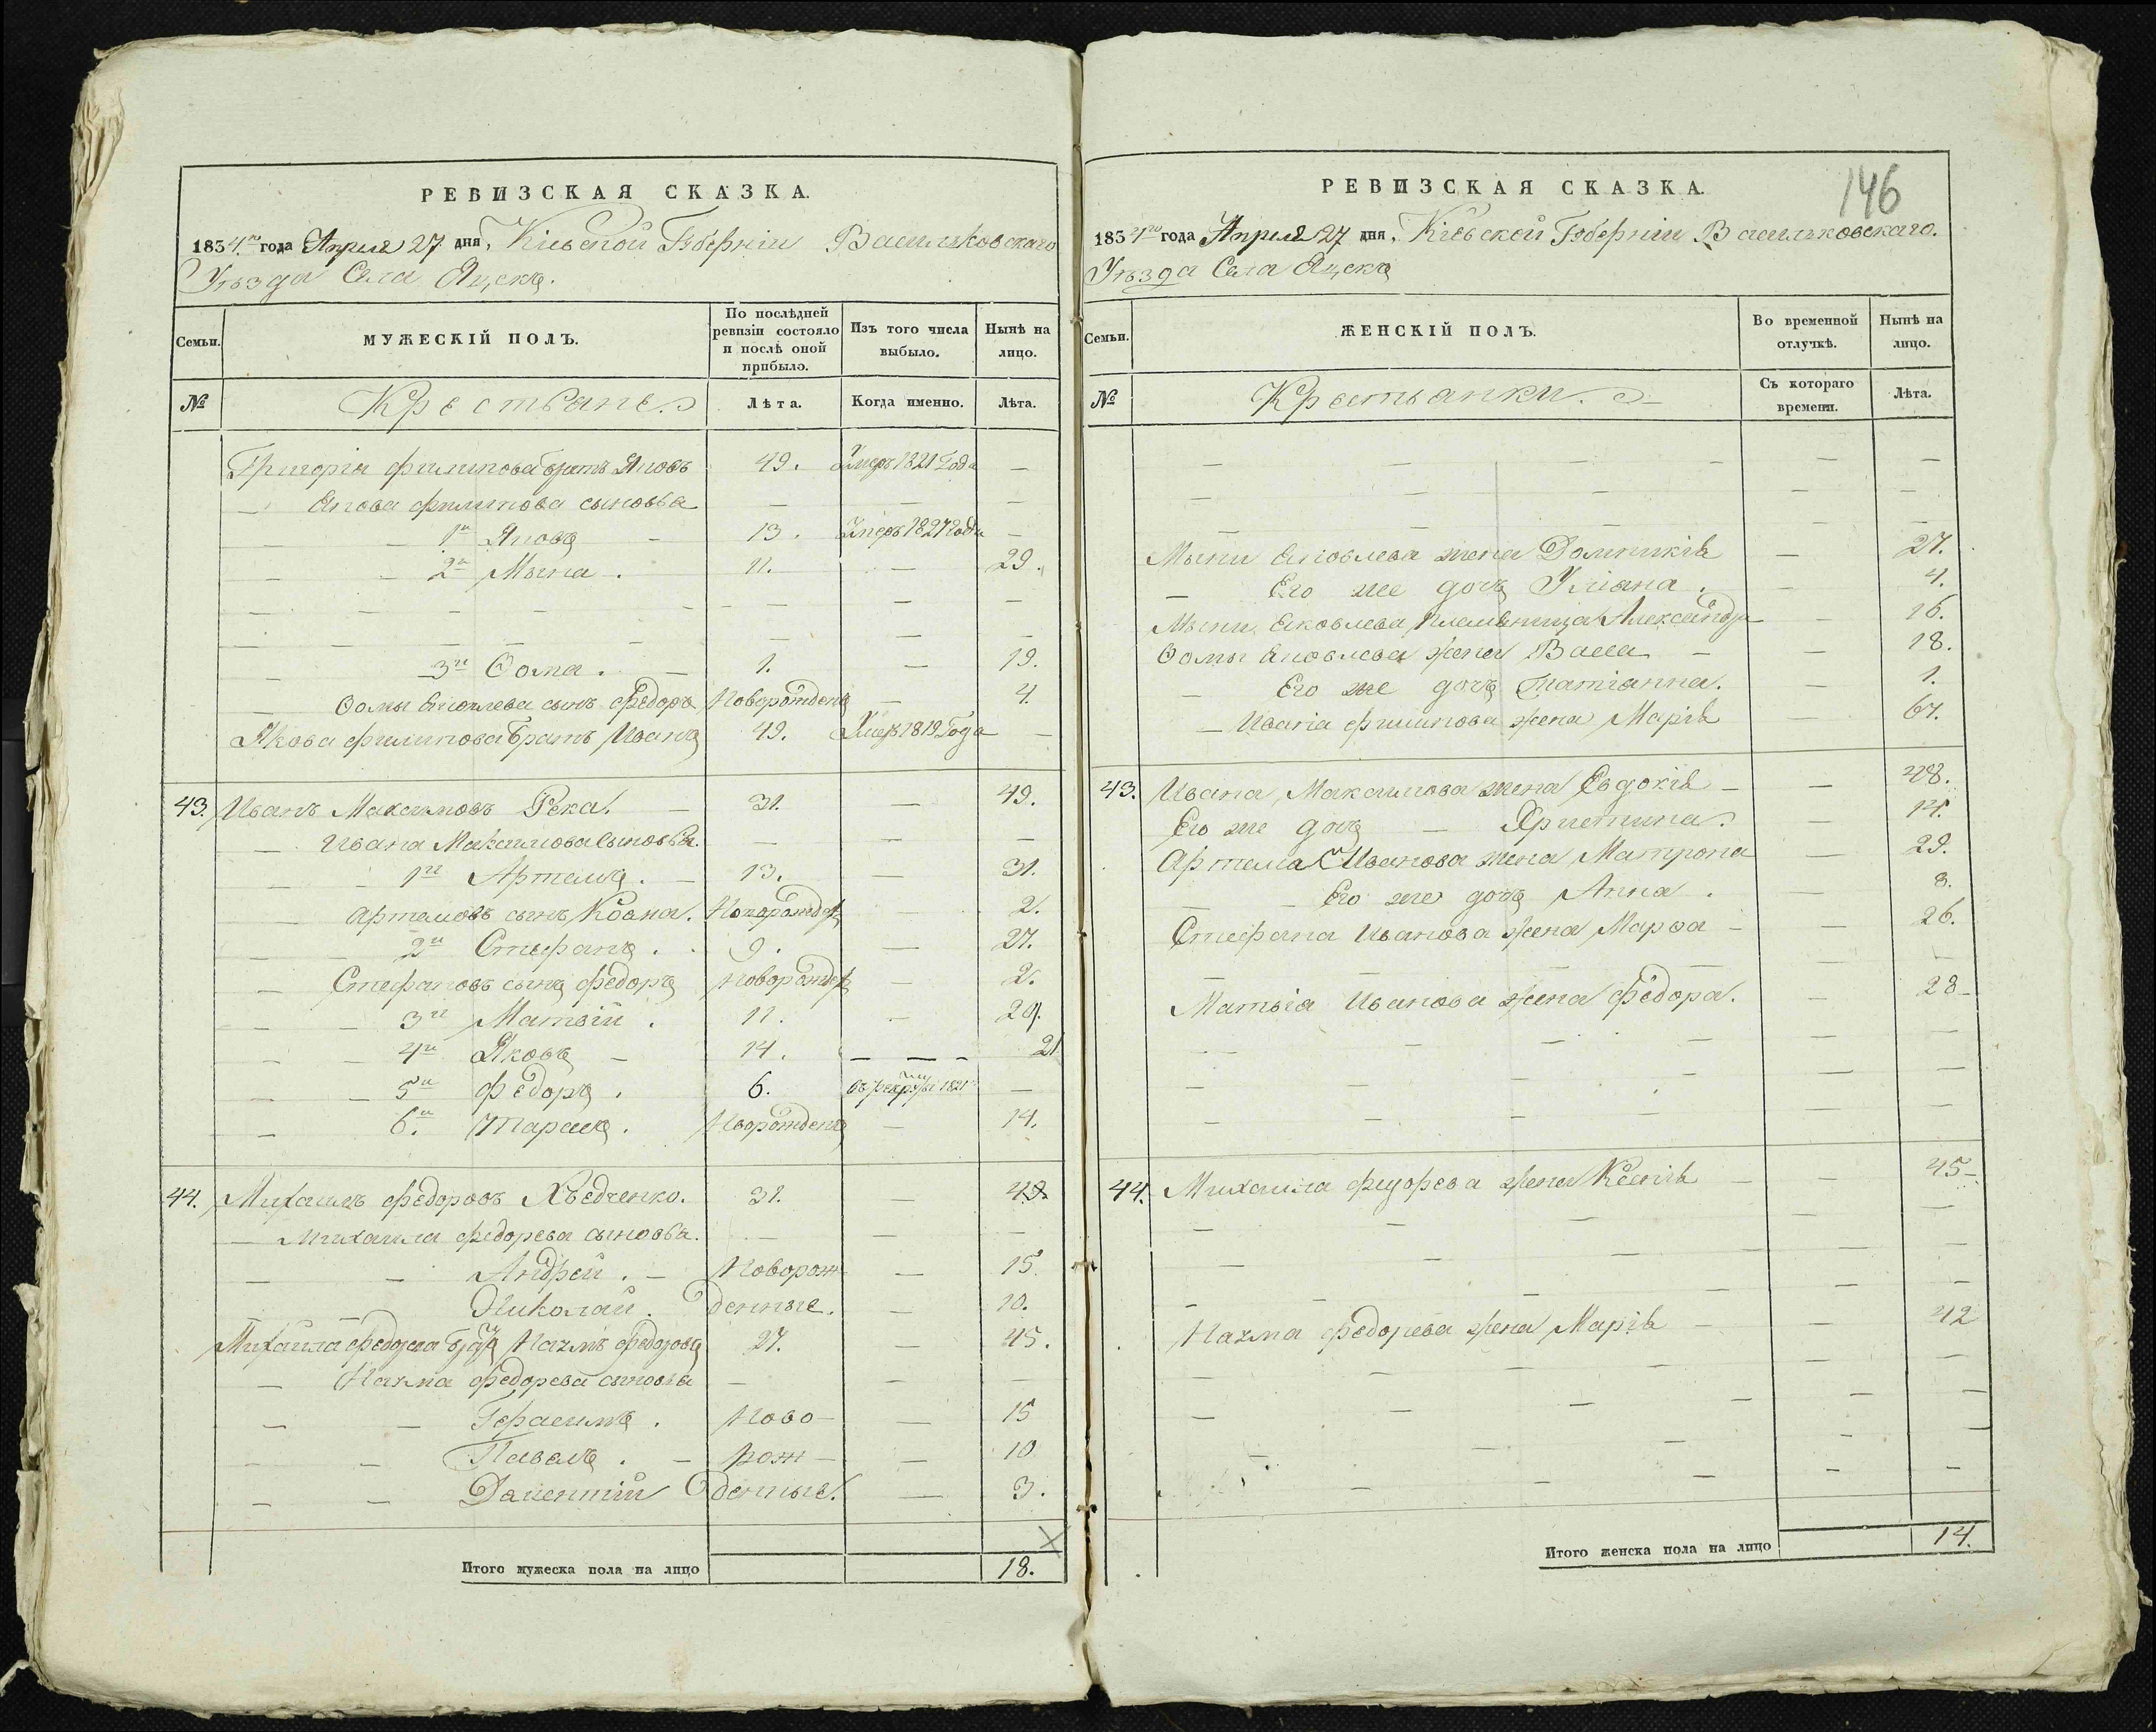 РЕВИЗСКАЯ СКАЗКА.
1834го года Апреля 27 дня, Кіевской Губерніи Васильковскаго
Уѣзда Села Яцекъ.
Семьи. МУЖЕСКІЙ ПОЛЪ. По послѣдней ревизіи состояло и послѣ оной прибыло. Изъ того числа выбыло. Нынѣ на лицо.
№ Крестьяне. Лѣта. Когда именно. Лѣта.
Григорія Филипова братъ Яковъ 49. Умеръ 1821 Года —
— Якова Филипова сыновья — — —
1й Яковъ 13. Умеръ 1827 года —
2й Мына. 11. — 29.
3й Ѳома. 1. — 19.
Ѳомы Яковлева сынъ Федоръ Новорожденъ — 4.
Якова Филипова братъ Иванъ 49. Умеръ 1819 Года —
43. Иванъ Максимовъ Река. 31. — 49.
Ивана Максимова сыновья. — — —
1й Артемъ. 13. — 31.
Артемовъ сынъ Новорожден 2.
2й Стефанъ. 9. — 27.
Стефановъ сынъ Федоръ Новорожден — 2.
3й Матвій. 11. — 29.
4й Яковъ 14. — — — 21
5й Федоръ. 6. въ рекруты 1821 —
6й Тарасъ. Нворожденъ — 14.
44. Михаилъ Федоровъ 31. — 49.
— Михаила Федорева сыновья. — — —
Андрей. — Новорож — 15.
Николай. денные. — 10.
Михаила Федорева братъ Наумъ Федоровъ 27. — 45.
— Наума Федорева сыновья — — —
Герасимъ. Ново — 15
Павелъ. — рож — 10
денные. — 3.
Итого мужеска пола на лицо 18.
146
РЕВИЗСКАЯ СКАЗКА.
1834го года Апреля 27 дня. Кіевской Губерніи Васильковскаго.
Уѣзда Села Яцекъ
Семьи. ЖЕНСКІЙ ПОЛЪ. Во временной отлучкѣ. Нынѣ на лицо.
№ Крестьянки. Съ котораго времени. Лѣта.
Мыни Яковлева жена Домникія — 27.
— Его же дочь Уліана. — 4.
Мыни Яковлева племѣница Александра — 16.
Ѳомы Яковлева жена Васса — — 18.
— Его же дочь Татіанна. — 1.
— Иванія Филипова жена Марія — 67.
43. Ивана Максимова жена Евдокія — — 48.
Его же дочь — Христина. — 14.
Артема Иванова жена Матрона — 29.
Его же дочь Анна. — 8.
Стефана Иванова жена Марѳа — — 26.
Матвія Иванова жена Федора. — 28
44. Михаила Федорева жена Ксенія — — 45
Наума Федорева жена Марія — — 42
Итого женска пола на лицо 14.